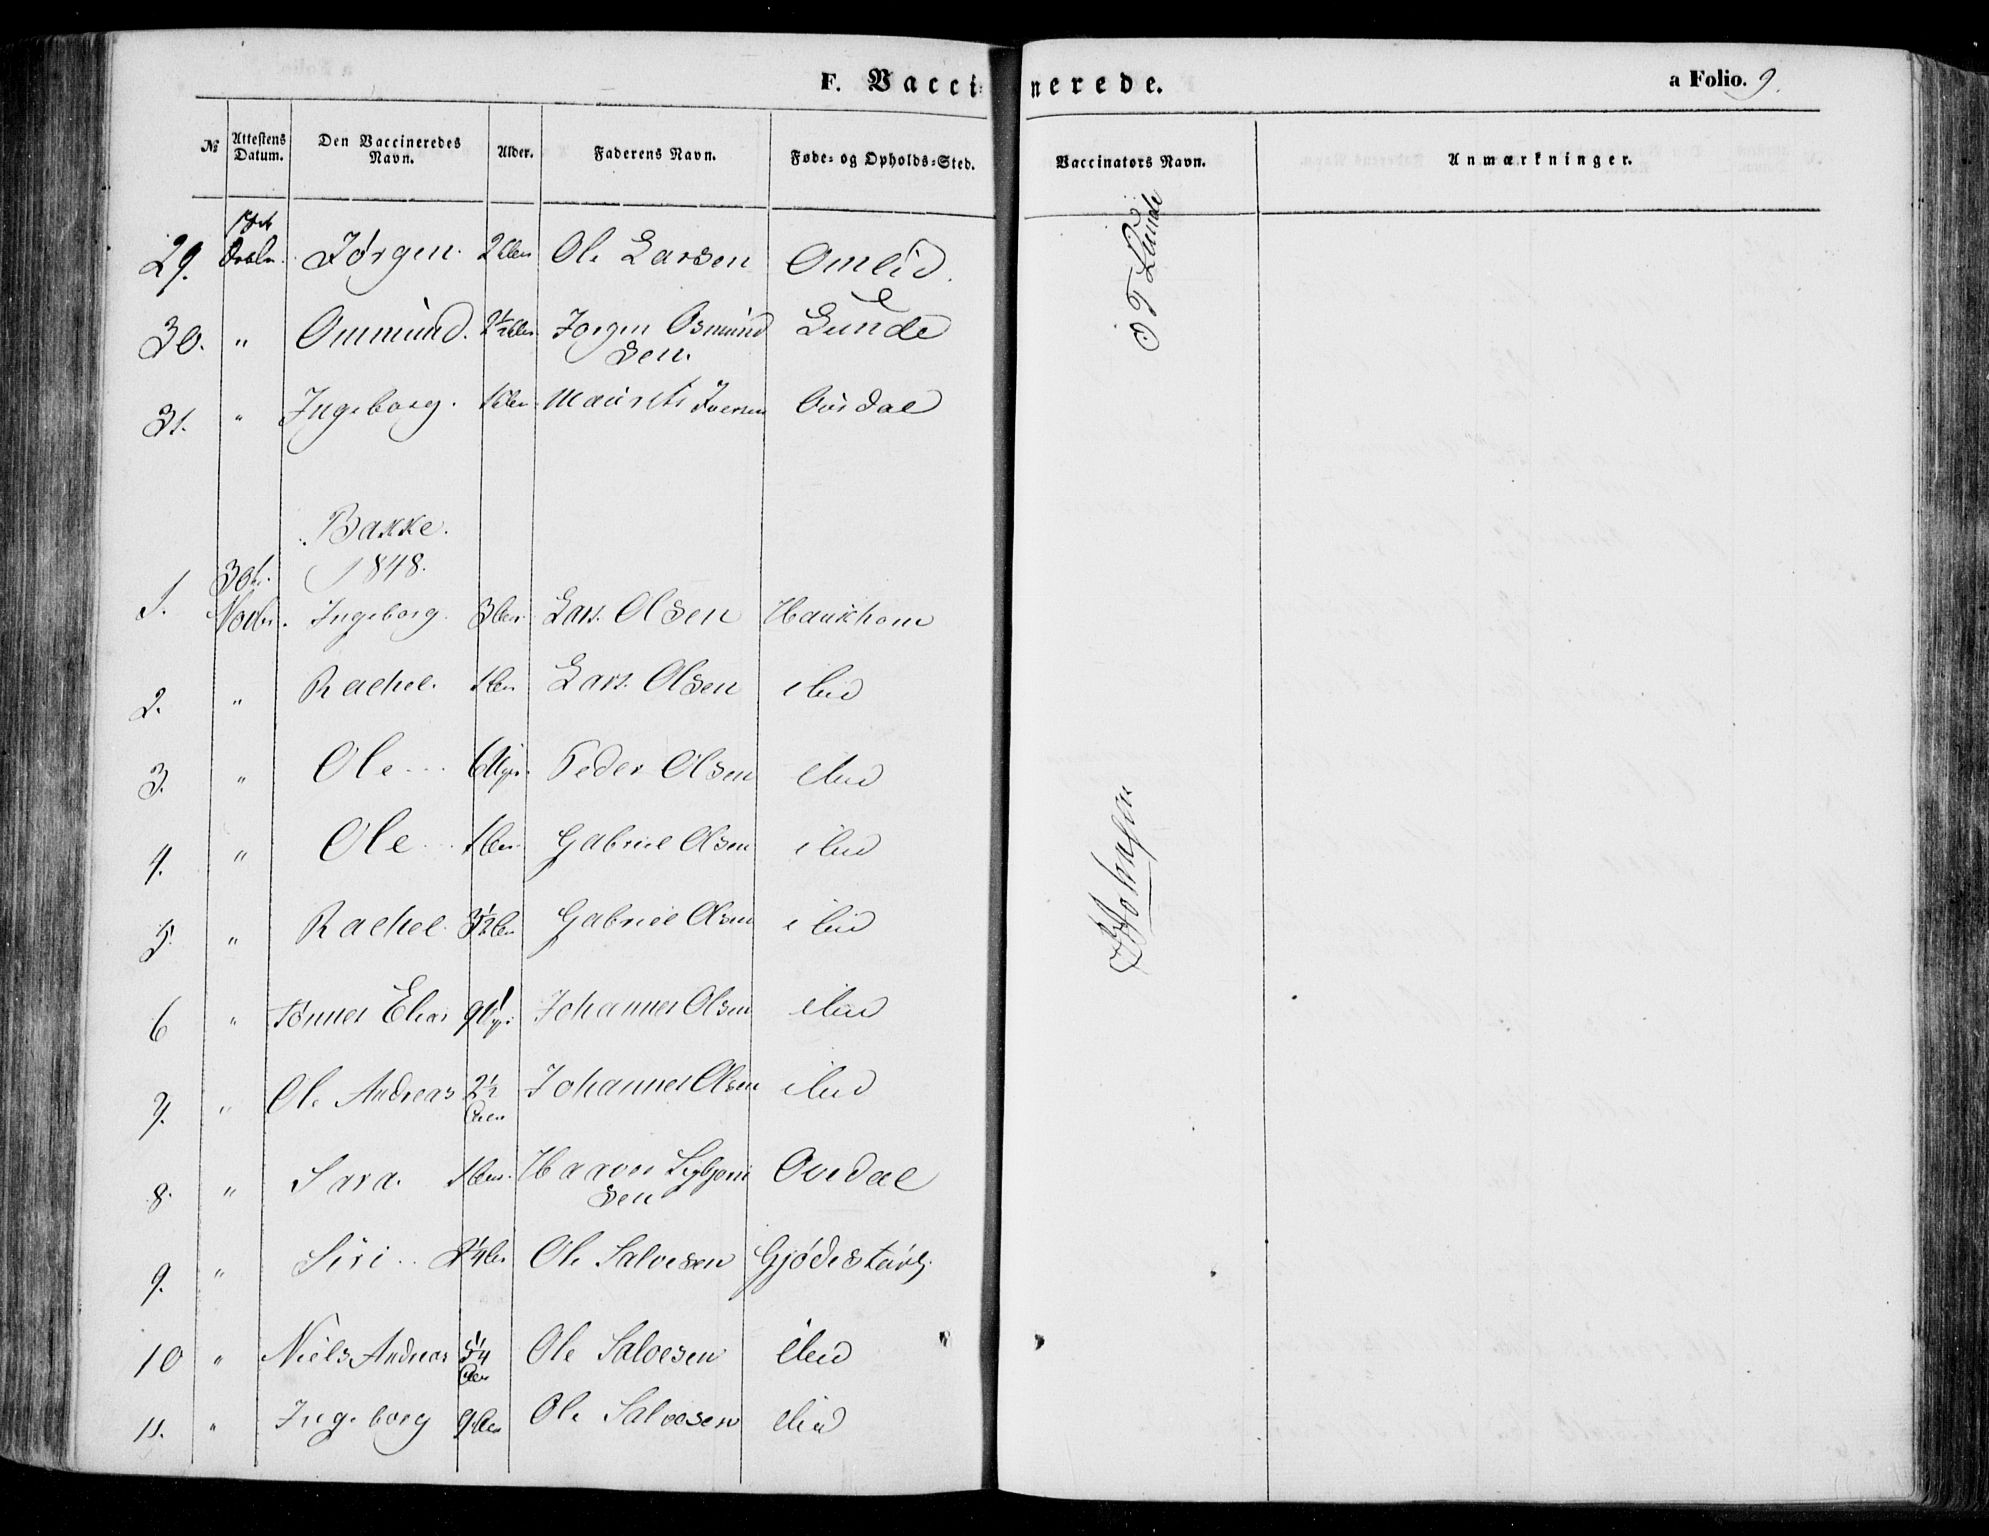 F. Vaccinerede.
a Folio. 9.
№ Attestens Datum. Den Vaccineredes Navn. Alder. Faderens Navn. Føde- og Opholds-Sted. Vaccinators Navn. Anmærkninger.
29. Jørgen. 2 Ole Larsen Omlid. T Lunde
30. " Ommund. 2½ Jørgen Osmund
sen. Lunde
31. " Ingeborg. 1 Iversen Ovedal
Bakke.
1848.
1. 30te
Novbr. Ingeborg. 3 Lars Olsen Haukhom
2. " Rachel. 1 Lars Olsen ibid
3. " Ole 6 Peder Olsen ibid
4. " Ole 1 Gabriel Olsen ibid
5. " Rachel 3½ Gabriel Olsen ibid
6 " Tønnes Elias 9 Johannes Olsen ibid
7. " Ole Andreas 2½ Johannes Olsen ibid
8. " Sara. 1 Sigbjørn
sen Ovedal
9. " Siri Ole Salvesen
10 " Niels Andreas 5¼ Ole Salvesen ibid
11. " Ingeborg 9 Ole Salvesen ibid